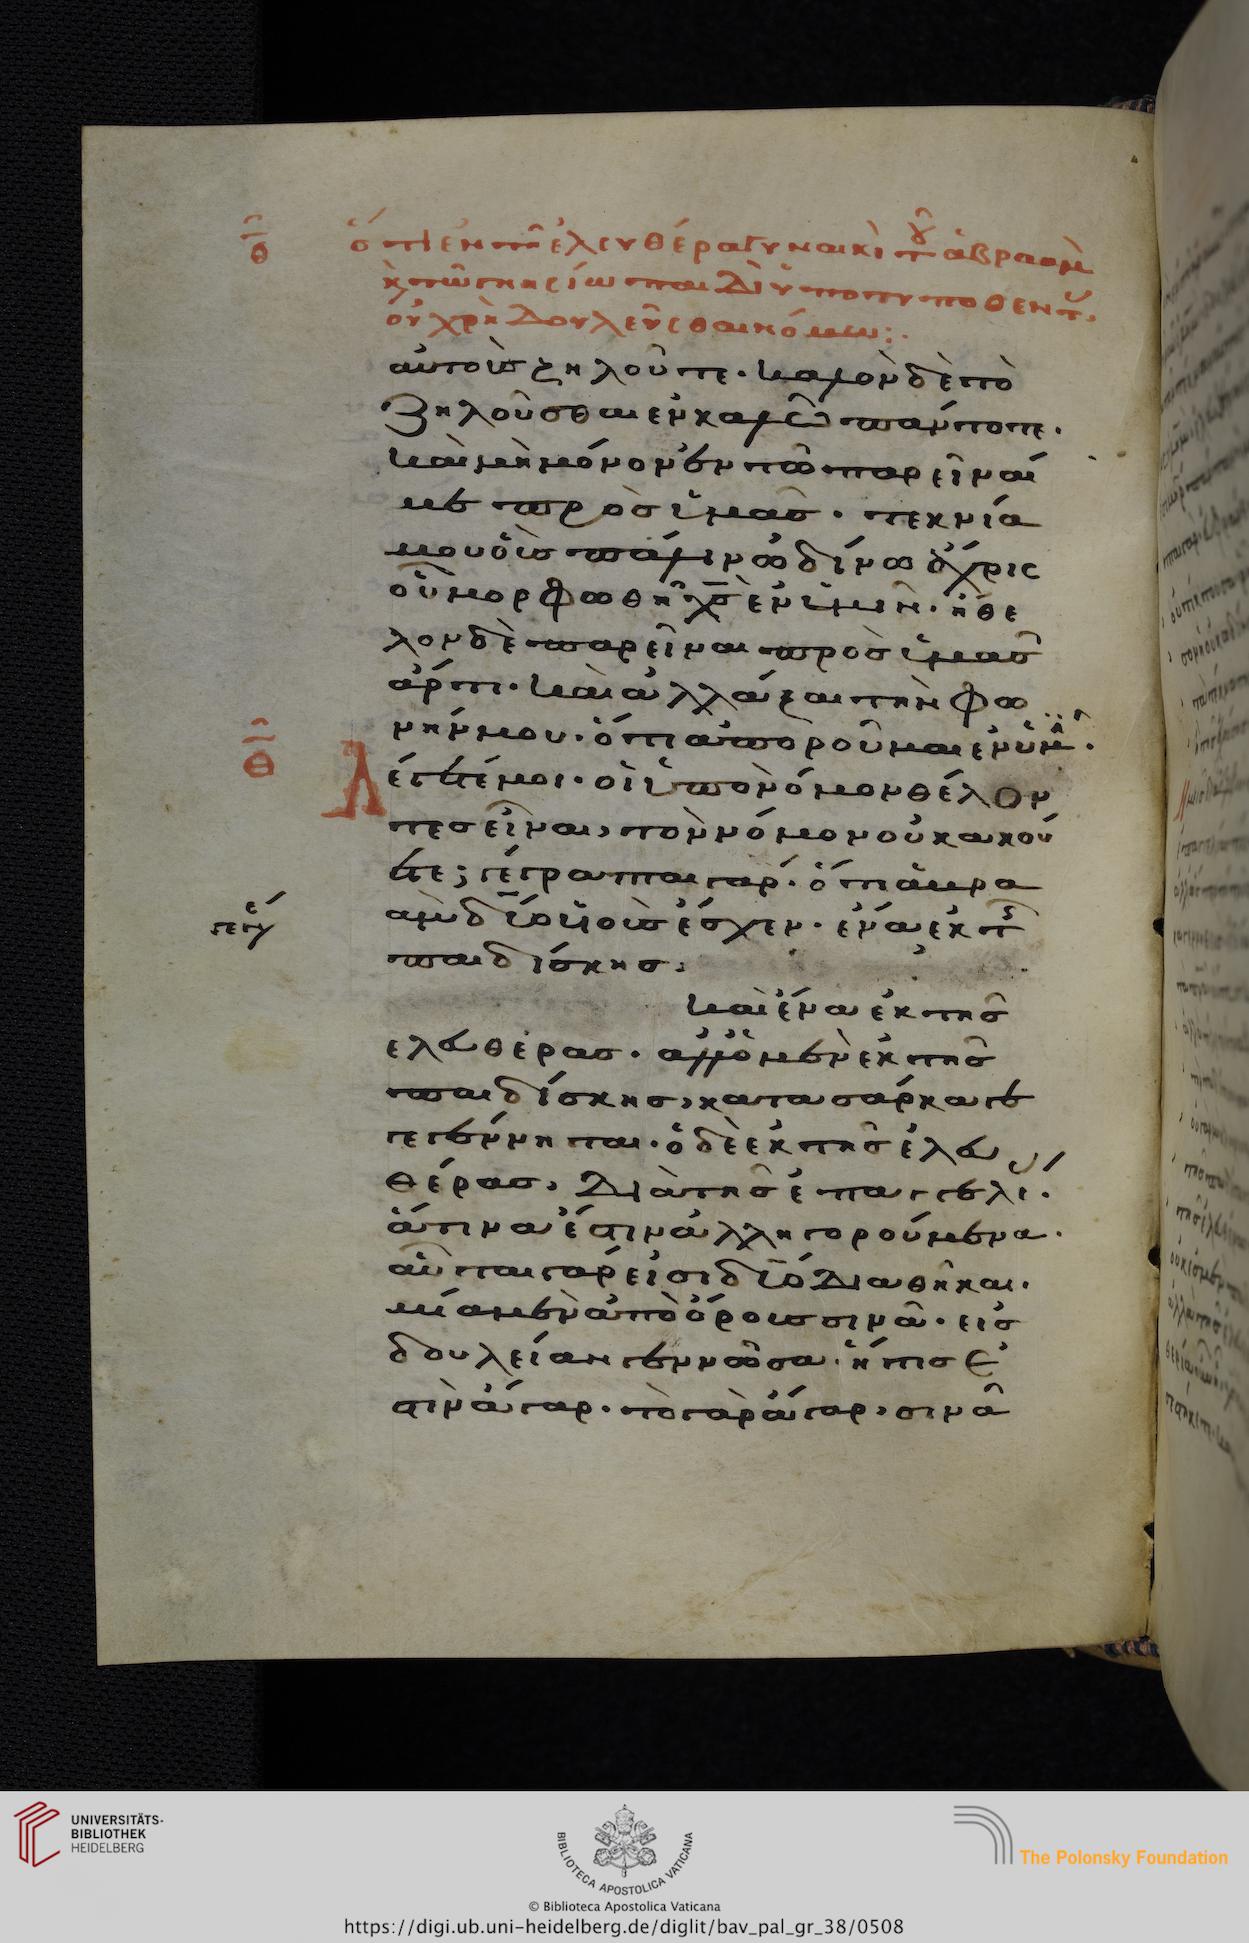 θ ὅτι ἐν τῆ ἐλευθέρα γυναικὶ τοῦ ἀβραὰμ
κ τῶ γνησίω παιδὶ ὑποτυποθεντ
οὐ χρὴ δουλεύεσθαι νόμω:
αὐτοὺς ζηλοῦτε. καλὸν δὲ τὸ
ζηλοῦσθαι ἐν καλῶ πάντοτε.
καὶ μὴ μόνον ἐν τῶ παρεῖναί
με πρὸς ὑμᾶς. τεκνία
μου οὓς πάλιν ὠδίνω ἄχρις
οὗ μορφωθῆ χς ἐν ὑμῖν. ἤθε
λον δὲ παρεῖναι πρὸς ὑμᾶς
ἄρτι. καὶ ἀλλάξαι τὴν φω
νήν μου. ὅτι ἀποροῦμαι ἐν ὑμ.
θ Λέγετέ μοι. οἱ ὑπὸ νόμον θέλον
τες εἶναι, τὸν νόμον οὐκ ακού
ετε; γέγραπται γὰρ. ὅτι ἀβρα
ὰμ δύο υἱοὺς ἔσχεν. ἕνα ἐκ τ
παιδίσκης.
καὶ ἕνα ἐκ τῆς
ελευθέρας. ἀλλ ὁ μὲν ἐκ τῆς
παιδίσκης, κατα σάρκα γε
γεγέννηται. ὁ δὲ ἐκ τῆς ἐλευ
θέρας, διὰ τῆς ἐπαγγελί.
ἅτινα ἐστιν ἀλλητορούμενα.
αὗται γάρ εἰσι δύο διαθῆκαι.
μία μὲν ἀπὸ ὄρους σινᾶ. εις
δουλείαν γεννῶσα. ἥτις ἐ
στὶν ἄγαρ. τὸ γὰρ ἄγαρ, σινᾶ
UNIVERSITÄTS-
BIBLIOTHEK
HEIDELBERG
BIBLIOTECA APOSTOLICA VATICANA
The Polonsky Foundation
© Biblioteca Apostolica Vaticana
https://digi.ub.uni-heidelberg.de/diglit/bav_pal_gr_38/0508